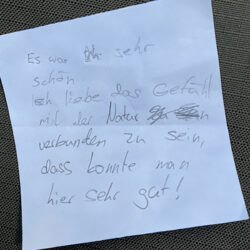 Es war sehr
schön.
Ich liebe das Gefühl
mit der Natur
verbunden zu sein,
dass konnte man
hier sehr gut!